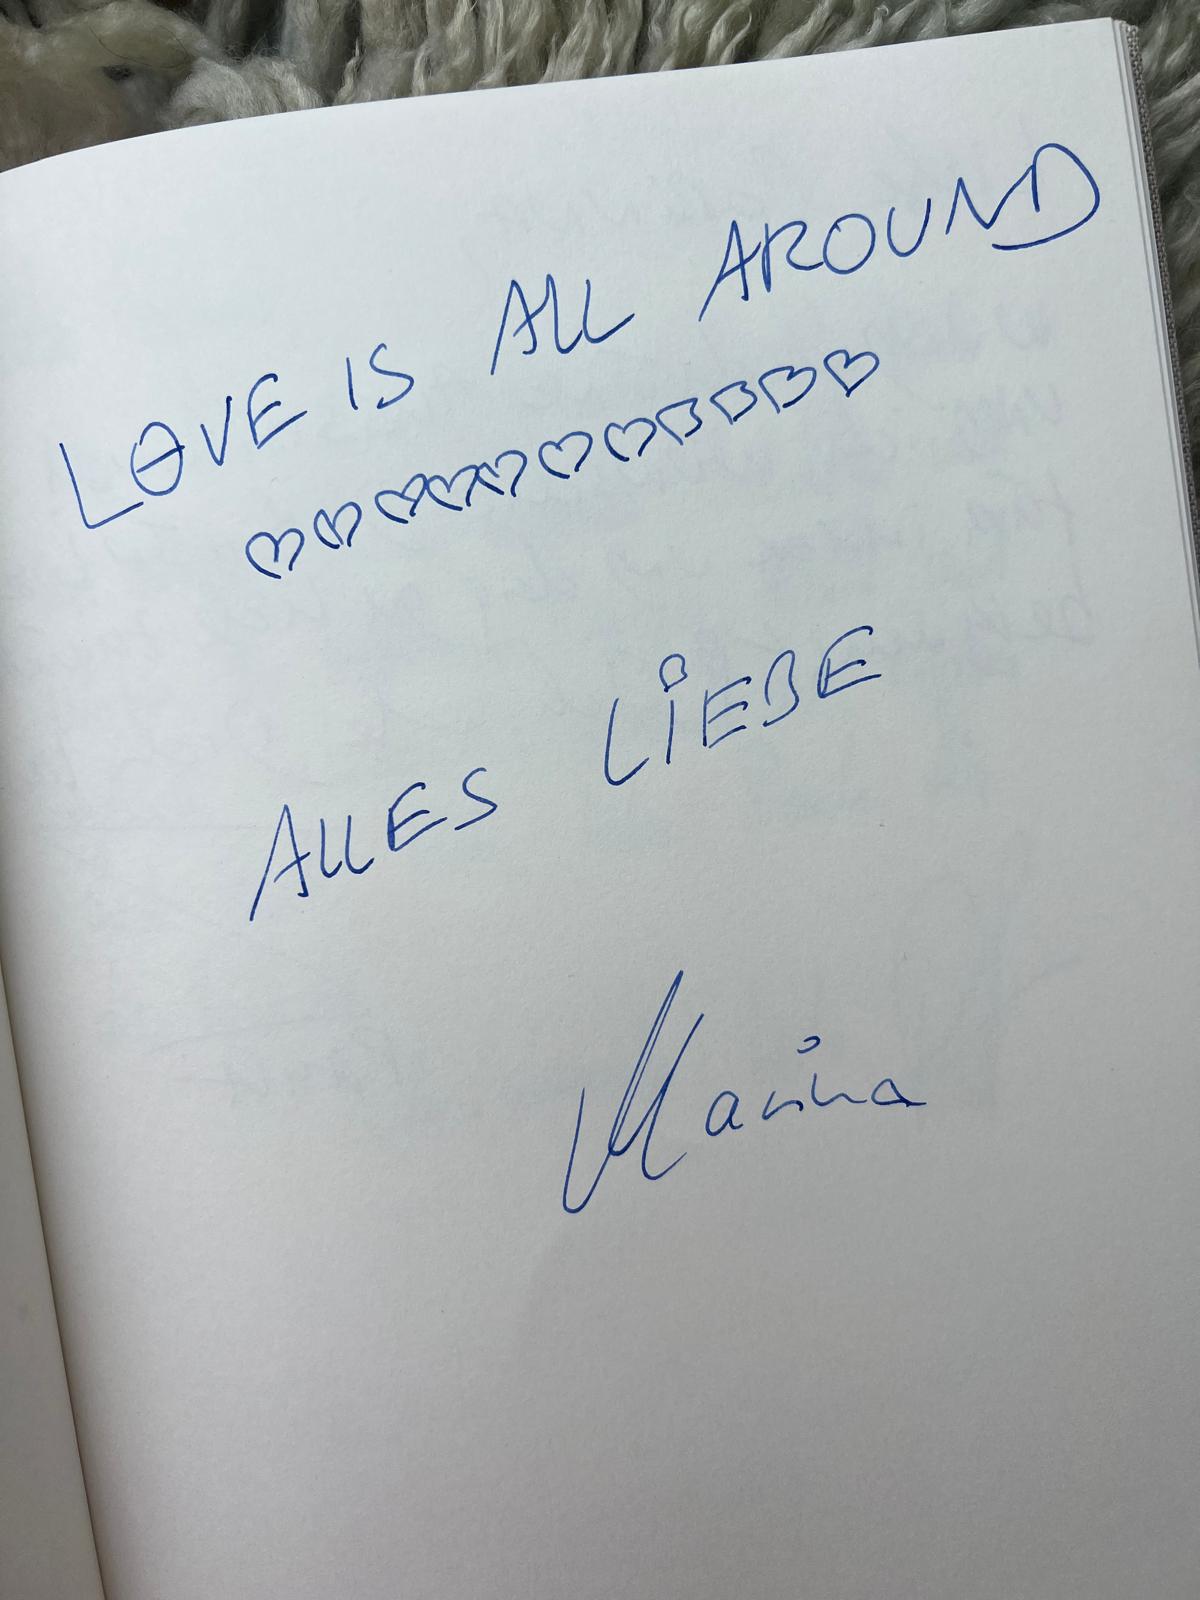 LOVE IS ALL AROUND
♡♡♡♡♡♡♡♡♡♡♡
ALLES LIEBE
Marina